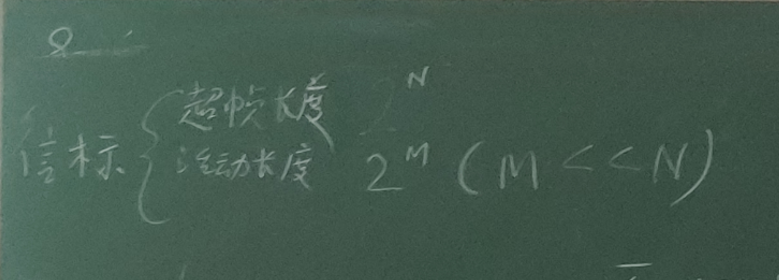 信标 { 超帧长度 2^N
活动长度 2^M (M << N)